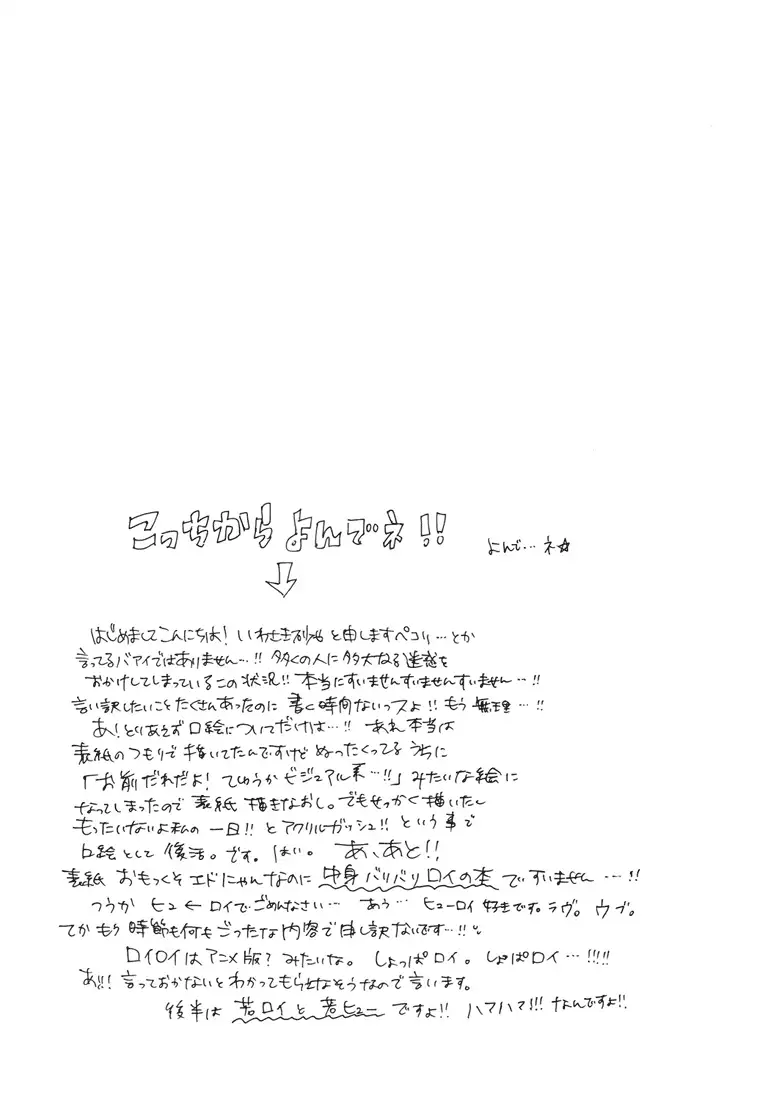 こっちから よんでネ!!
よんで…ネ☆
↓
はじめましてこんにちは! いわせき と申しますペコリ…とか
言ってるバアイではありません…!! 多くの人に多大なる迷惑を
おかけしてしまっているこの状況!! 本当にすいませんすいませんすいません…!!
言い訳したいことたくさんあったのに 書く時間ないっスよ!! もう 無理…!!
あ! とりあえず口絵についてだけは…!! あれ本当は
表紙のつもりで描いてたんですけど ぬったくってるうちに
「お前だれだよ! てゆうかビジュアル系…!!」みたいな絵に
なってしまったので 表紙 描きなおし。でもせっかく描いたし
もったいないよ私の 一日!! とアクリルガッシュ!! という事で
口絵として 復活。です。はい。 あ、あと!!
表紙 おもっくそ エドにゃんなのに 中身バリバリロイの本 ですいません…!!
つうか ヒュ←ロイでごめんなさい… あう… ヒューロイ 好きです。ラヴ。ウブ。
てか もう 時節も何もごったな内容で申し訳ないです…!!
ロイロイはアニメ版? みたいな。 しょっぱロイ。しょぱロイ…!!!!
あ!! 言っておかないとわかってもらえなそうなので言います。
後半は 若ロイと 若ヒュー ですよ!! ハァハァ!!! なんですよ!!